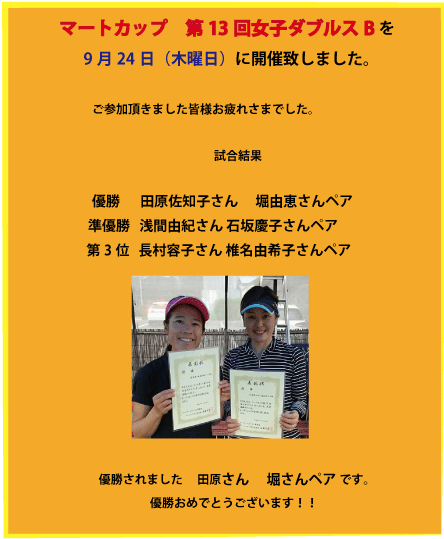 マートカップ　第 13 回女子ダブルス B を
9 月 24 日（木曜日）に開催致しました。
ご参加頂きました皆様お疲れさまでした。
試合結果
優勝　田原佐知子さん　堀由恵さんペア
準優勝　浅間由紀さん 石坂慶子さんペア
第 3 位　長村容子さん 椎名由希子さんペア
表彰状
表彰状
優勝されました　田原さん　堀さんペア です。
優勝おめでとうございます！！